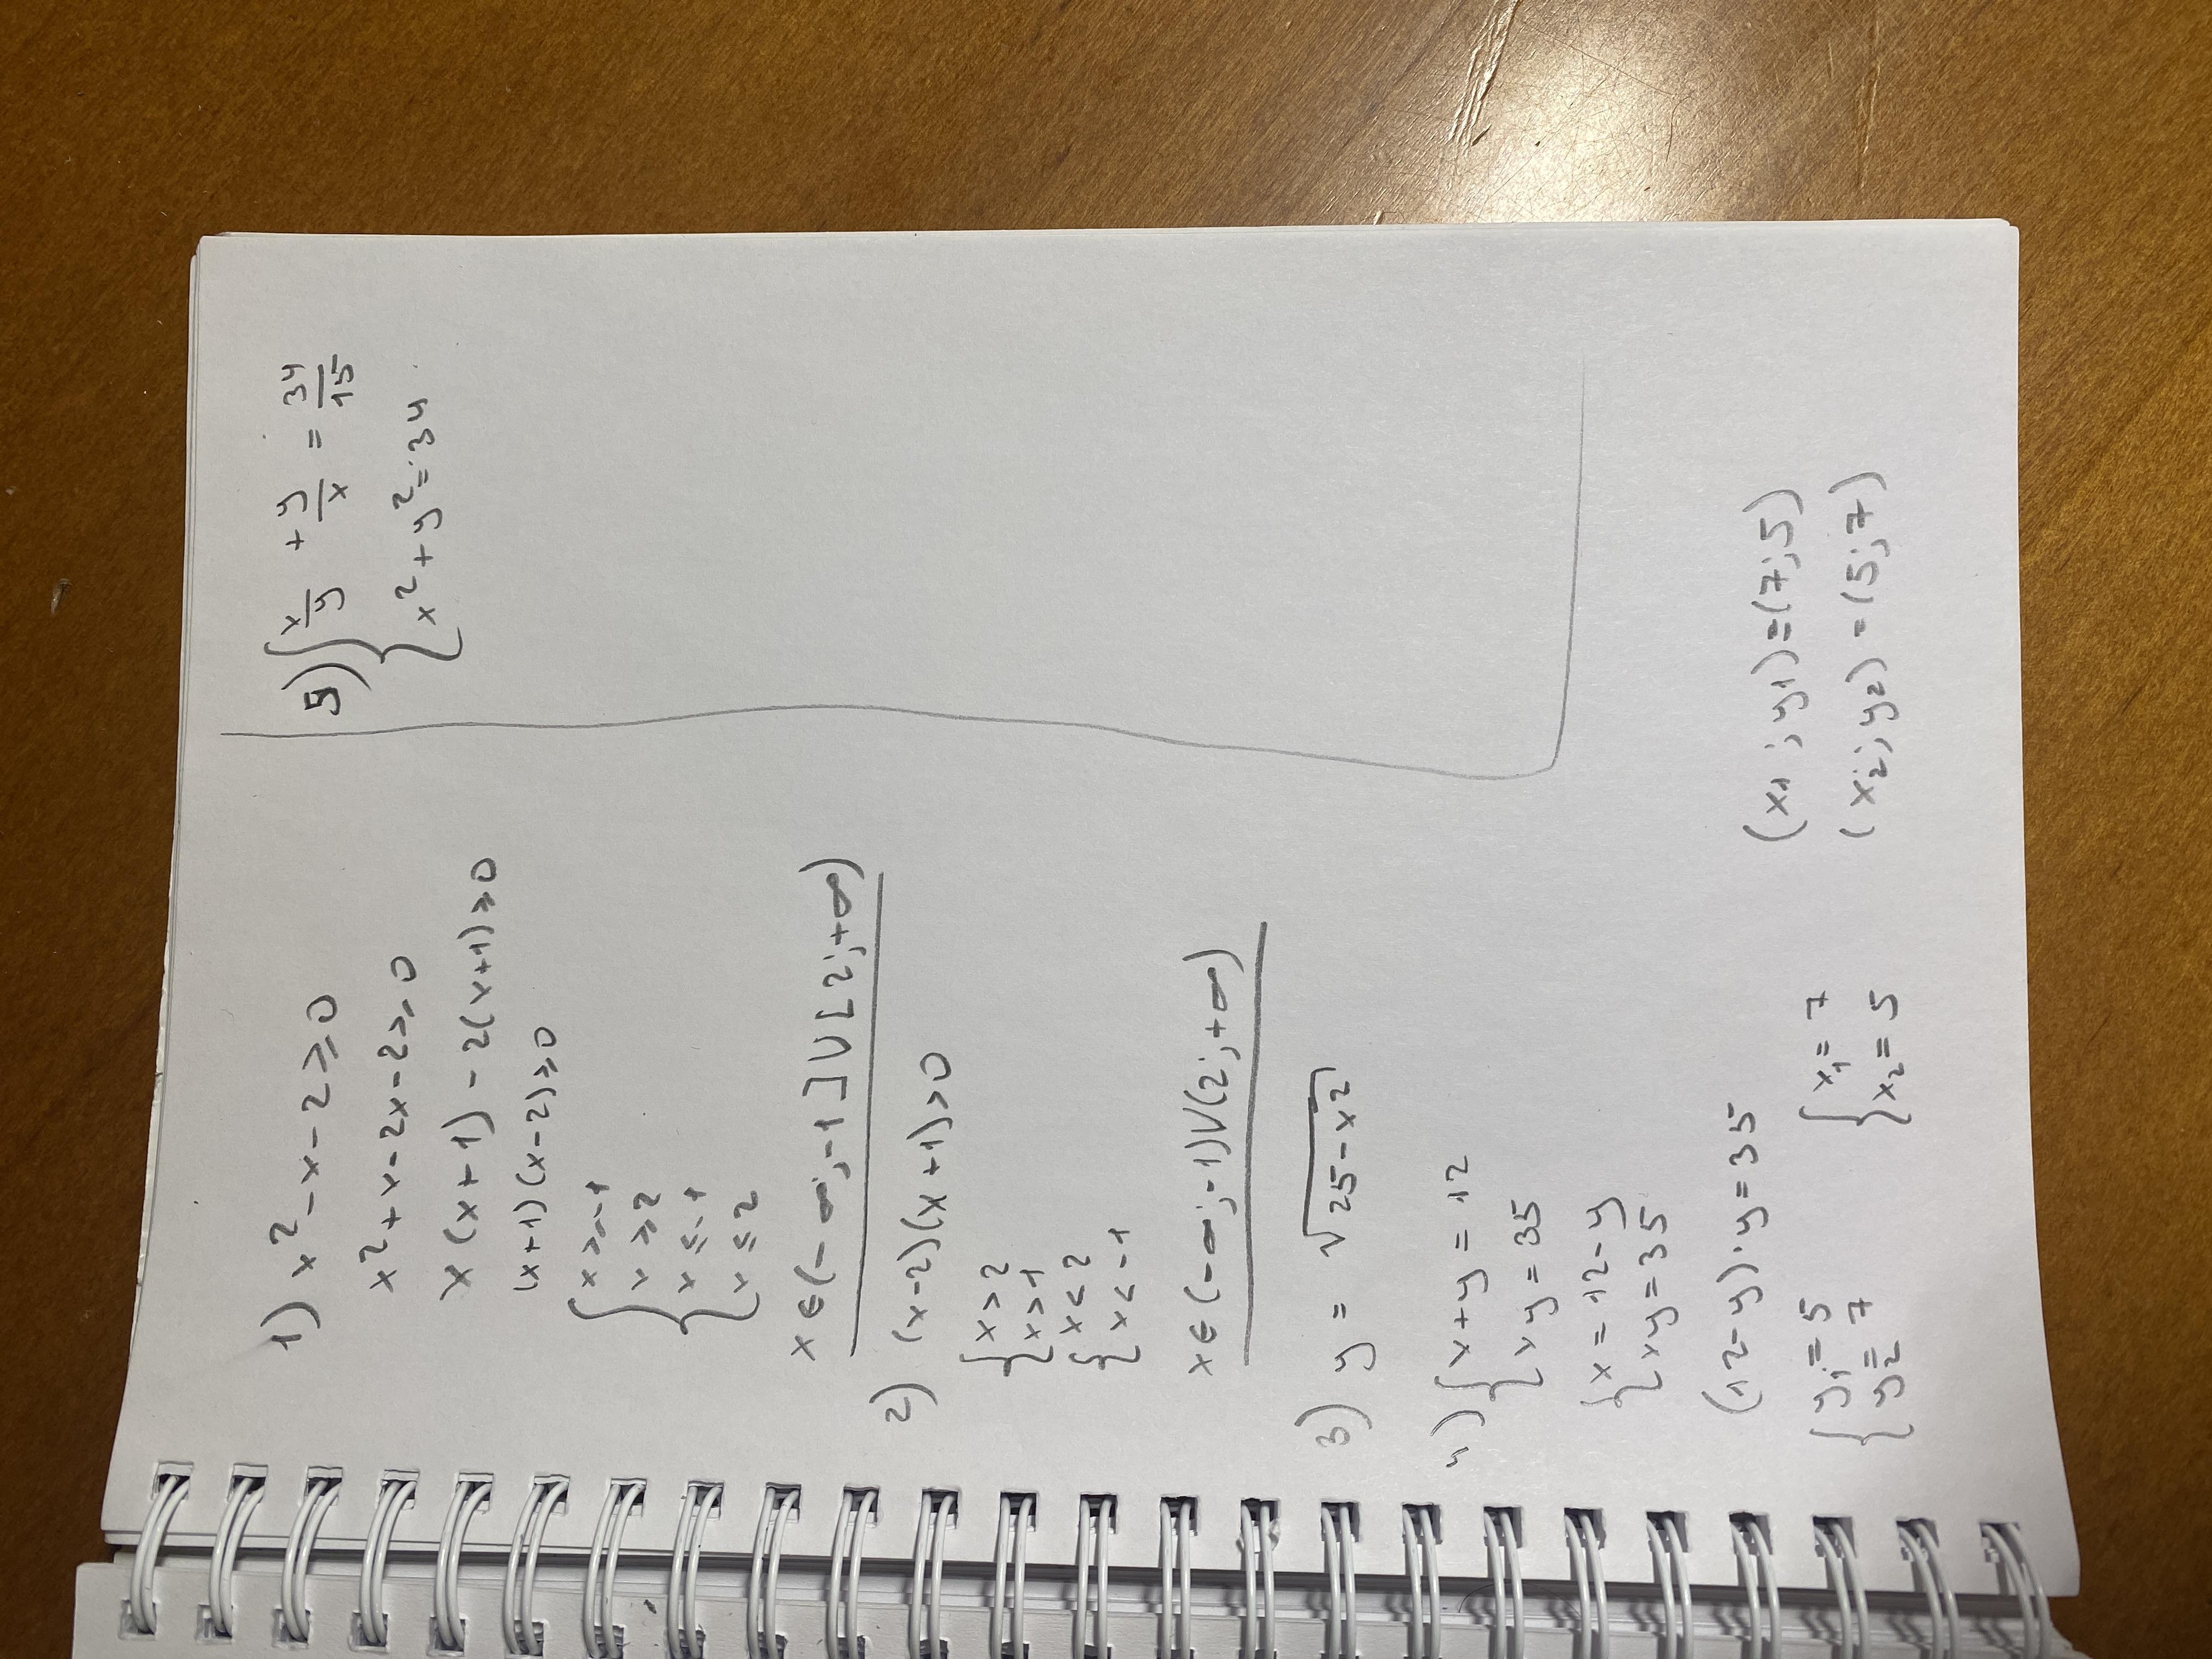 1) x² - x - 2 ⩾ 0
x² + x - 2x - 2 ⩾ 0
x(x+1) - 2(x+1) ⩾ 0
(x+1)(x-2) ⩾ 0
{ x ⩾ -1
x ⩾ 2
{ x ⩽ -1
x ⩽ 2
x ∈ (-∞; -1] ∪ [2; +∞)
2) (x-2)(x+1) > 0
{ x > 2
x > 1
{ x < 2
x < -1
x ∈ (-∞; -1) ∪ (2; +∞)
3) y = √(25 - x²)
4) { x + y = 12
xy = 35
{ x = 12 - y
xy = 35
(12 - y) · y = 35
{ y₁ = 5
y₂ = 7
{ x₁ = 7
x₂ = 5
(x₁; y₁) = (7; 5)
(x₂; y₂) = (5; 7)
5) { x/y + y/x = 34/15
x² + y² = 34